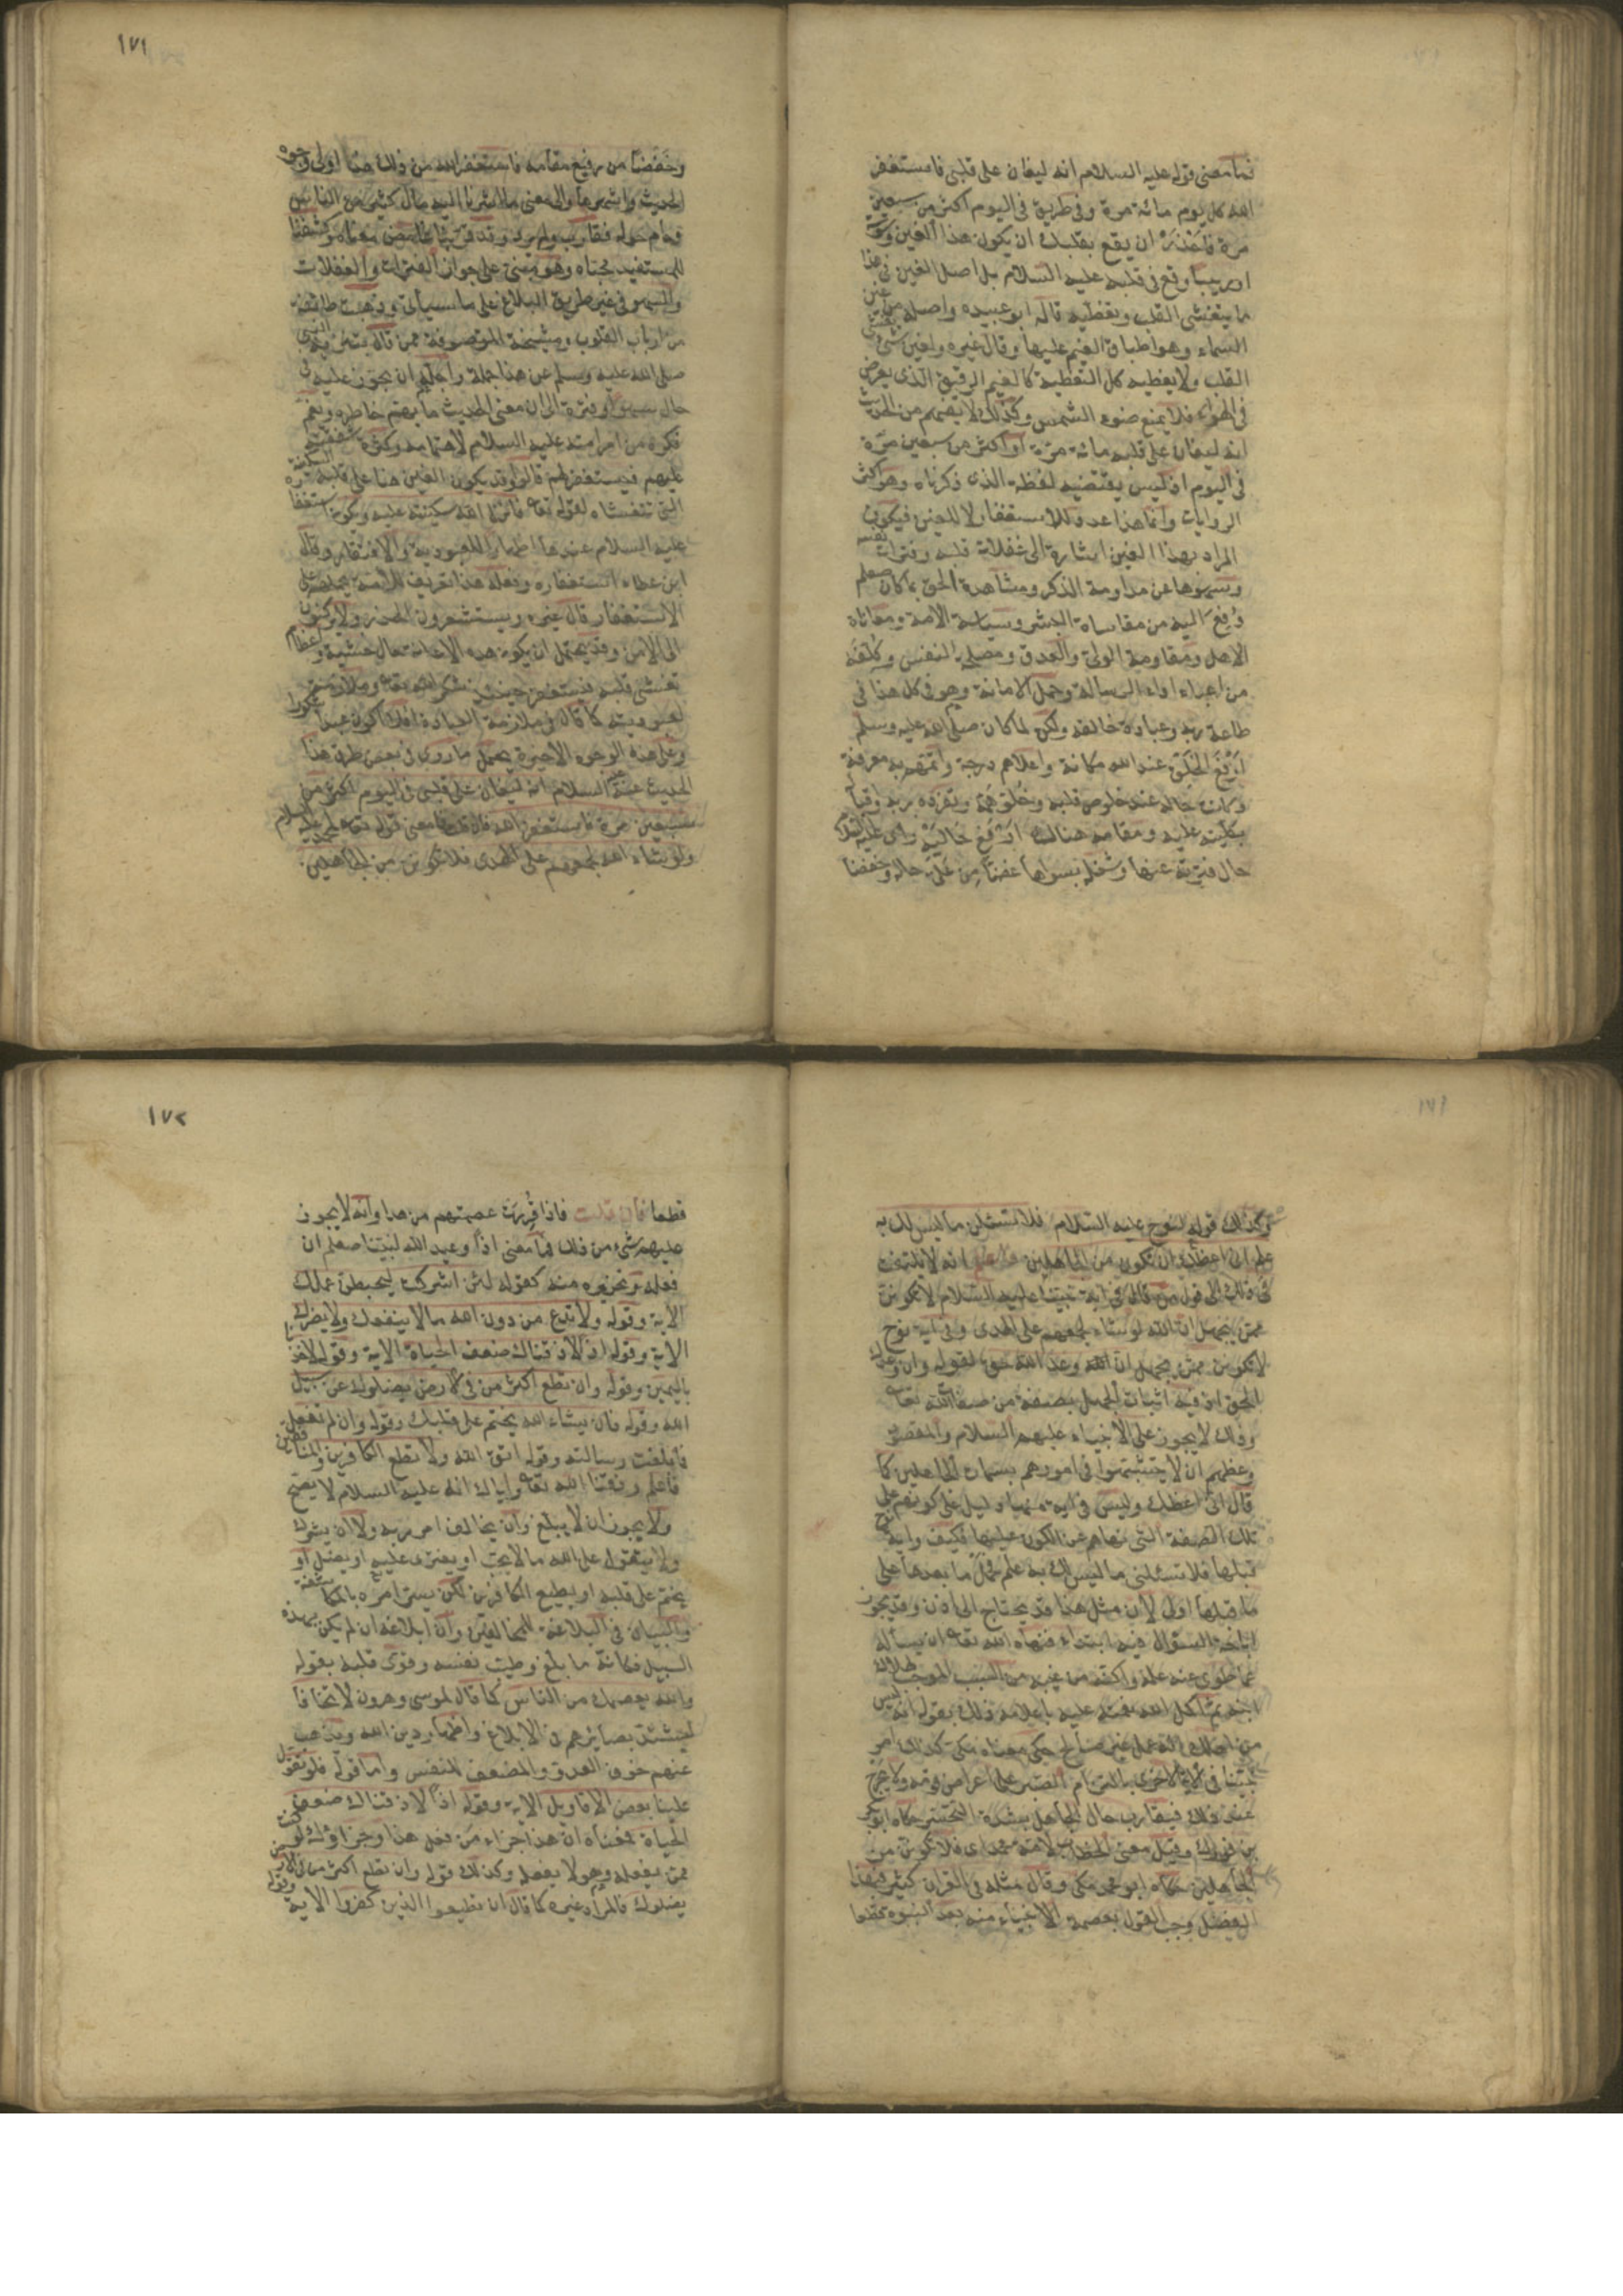 فما معنى قوله عليه السلام انه ليغان على قلبى فاستغفر
الله كل يوم مائة مرة وفى طريق فى اليوم اكثر من سبعين
مرة فاحذر ان يقع بقلبك ان يكون هذا الغين وسوسة
او ريبا وقع فى قلبه عليه السلام بل اصل الغين فى هذا
ما يتغشى القلب ويغطيه قاله ابو عبيده واصله من غين
السماء وهو اطباق الغيم عليها وقال غيره والغين شئ يغشى
القلب ولا يغطيه كل التغطية كالغيم الرقيق الذى يعرض
فى الهواء فلا يمنع ضوء الشمس وكذلك لا يفهم من الحديث
انه ليغان على قلبه مائة مرة او اكثر من سبعين مرة
فى اليوم اذ ليس يقتضيه لفظه الذى ذكرناه وهو اكثر
الروايات وانما هذا عدد للاستغفار لا للغين فيكون
المراد بهذا الغين اشارة الى غفلات قلبه وفترات نفسه
وسهوها عن مداومة الذكر ومشاهدة الحق بما كان صعلم
دفع اليه من مقاساة البشر وسياسة الامة ومعاناة
الاهل ومقاومة الولى والعدو ومصلحة النفس وكلفه
من اعباء اداء الرسالة وحمل الامانة وهو فى كل هذا فى
طاعة ربه وعبادة خالقه ولكن لما كان صلى الله عليه وسلم
ارفع الخلق عند الله مكانة واعلاهم درجة واتمهم به معرفة
وكانت حاله عند خلوص قلبه وخلو همه وتفرده بربه واقباله
بكليته عليه ومقامه هنالك ارفع حاليه راى عليه السلام
حال فترته عنها وشغله بسواها غضا من على حاله وخفضا
١٧١
وخفضا من رفيع مقامه فاستغفر الله من ذلك هذا اولى وجوه
الحديث واشهرها والى معنى ما اشرنا اليه مال كثير من الناس
وحام حوله فقارب ولم يرد وقد قربنا غامض معناه وكشفنا
للمستفيد محياه وهو مبنى على جواز الفترات والغفلات
والسهو فى غير طريق البلاغ على ما سيأتى وذهبت طائفة
من ارباب القلوب ومشيخة المتصوفة ممن قال بتنزيه النبى
صلى الله عليه وسلم عن هذا جملة واجله ان يجوز عليه فى
حال سهو او فترة الى ان معنى الحديث ما يهم خاطره ويغم
فكره من امر امته عليه السلام لاهتمامه وكثرة شفقته
عليهم فيستغفر لهم قالوا وقد يكون الغين هنا على قلبه السكينة
التى تتغشاه لقوله تعا فانزل الله سكينته عليه ويكون استغفاره
عليه السلام عندها اظهارا للعبودية والافتقار وقال
ابن عطاء استغفاره وفعله هذا تعريف للامة يحملهم على
الاستغفار قال غيره ويستشعرون الحذر ولا يركنون
الى الامن وقد يحتمل ان يكون هذه الاغانة حال خشية واعظام
تغشى قلبه فيستغفر حينئذ شكرا لله تعا وملازمة
لعبوديته كما قال فى ملازمة العبادة افلا اكون عبدا شكورا
وعلى هذه الوجوه الاخيرة يحمل ما روى فى بعض طرق هذا
الحديث عنه عليه السلام انه ليغان على قلبى فى اليوم اكثر من
سبعين مرة فاستغفر الله فان قلت فما معنى قوله تعا لمحمد عليه السلام
ولو شاء الله لجمعهم على الهدى فلا تكونن من الجاهلين
١٧١
وكذلك قوله لنوح عليه السلام فلا تسئلن ما ليس لك به
علم انى اعظك ان تكون من الجاهلين فاعلم انه لا يلتفت
فى ذلك الى قول من قال فى آية نبينا عليه السلام لا تكونن
ممن يجهل ان الله لو شاء لجمعهم على الهدى وفى اية نوح
لا تكونن ممن يجهل ان الله وعد الله حق لقوله وان وعدك
الحق اذ فيه اثبات الجهل بصفة من صفات الله تعا
وذلك لا يجوز على الانبياء عليهم السلام والمقصود
وعظهم ان لا يتشبهوا فى امورهم بسمات الجاهلين كما
قال انى اعظك وليس فى اية منهما دليل على كونهم على
تلك الصفة التى نهاهم عن الكون عليها فكيف واية نوح
قبلها فلا تسئلنى ما ليس لك به علم فحمل ما بعدها على
ما قبلها اولى لان مثل هذا قد يحتاج الى اذن وقد يجوز
اباحة السؤال فيه ابتداء فنهاه الله تعا ان يسأله
عما طوى عنه علمه واكنه من غيبه من السبب الموجب لهلاك
ابنه ثم اكمل الله نعمته عليه باعلامه ذلك بقوله انه ليس
من اهلك انه عمل غير صالح حكى معناه مكى كذلك امر
نبينا فى الآية الاخرى بالتزام الصبر على اعراض قومه ولا يحرج
عند ذلك فيقارب حال الجاهل بشدة التحسر حكاه ابو بكر
بن فورك وقيل معنى الخطاب لامة محمد اى فلا تكونن من
الجاهلين حكاه ابو محمد مكى وقال مثله فى القران كثير فبهذا
الفضل وجب القول بعصمة الانبياء منه بعد النبوة قطعا
١٧٢
قطعا فان قلت فاذا قررت عصمتهم من هذا وانه لا يجوز
عليهم شئ من ذلك فما معنى اذا وعيد الله لنبينا صعلم ان
فعله وتحذيره منه كقوله لئن اشركت ليحبطن عملك
الاية وقوله ولا تدع من دون الله ما لا ينفعك ولا يضرك
الاية وقوله اذا لاذقناك ضعف الحياة الاية وقوله لاخذنا
باليمين وقوله وان تطع اكثر من فى الارض يضلوك عن سبيل
الله وقوله فان يشاء الله يختم على قلبك وقوله وان لم تفعل
فما بلغت رسالته وقوله اتق الله ولا تطع الكافرين والمنافقين
فاعلم وفقنا الله تعا واياك انه عليه السلام لا يصح
ولا يجوز ان لا يبلغ وان يخالف امر ربه ولا ان يشرك
ولا يتقول على الله ما لا يجب او يفترى عليه او يضل او
يختم على قلبه او يطيع الكافرين لكن يسر امره بالمكاشفة
والبيان فى البلاغ للمخالفين وان ابلاغه ان لم يكن بهذه
السبيل فكانه ما بلغ وطيب نفسه وقوى قلبه بقوله
والله يعصمك من الناس كما قال لموسى وهرون لا تخافا
ليشتد بصائرهم فى الابلاغ واظهار دين الله ويذهب
عنهم خوف العدو والمضعف للنفس واما قوله ولو تقول
علينا بعض الاقاويل الاية وقوله اذا لاذقناك ضعف
الحياة فمعناه ان هذا جزاء من فعل هذا وجزاؤك لو كنت
ممن يفعله وهو لا يفعله وكذلك قوله وان تطع اكثر من فى الارض
يضلوك فالمراد غيره كما قال ان تطيعوا الذين كفروا الاية وقوله